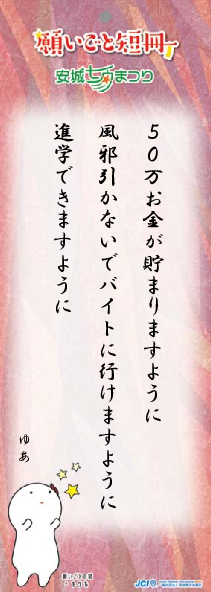 願いごと短冊
安城七夕まつり
50万お金が貯まりますように
風邪引かないでバイトに行けますように
進学できますように
ゆあ
願いごと短冊
JCI